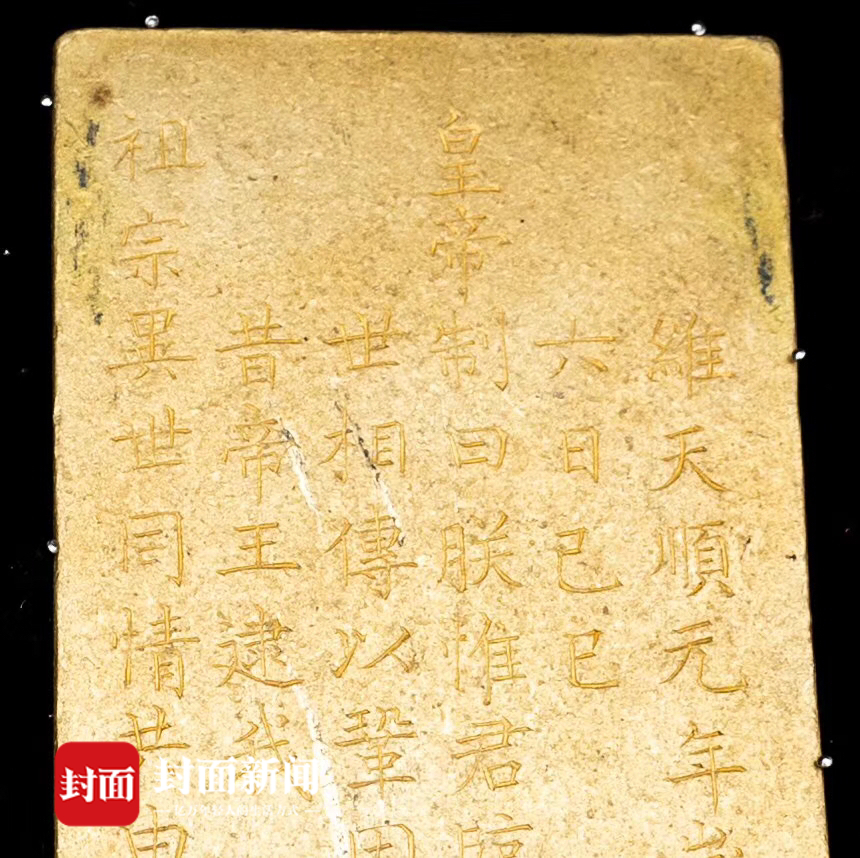 維天順元年
六日己巳
皇帝制曰朕惟君臨
世相傳以鞏固
昔帝王逮我
祖宗異世同情
封面
封面新闻